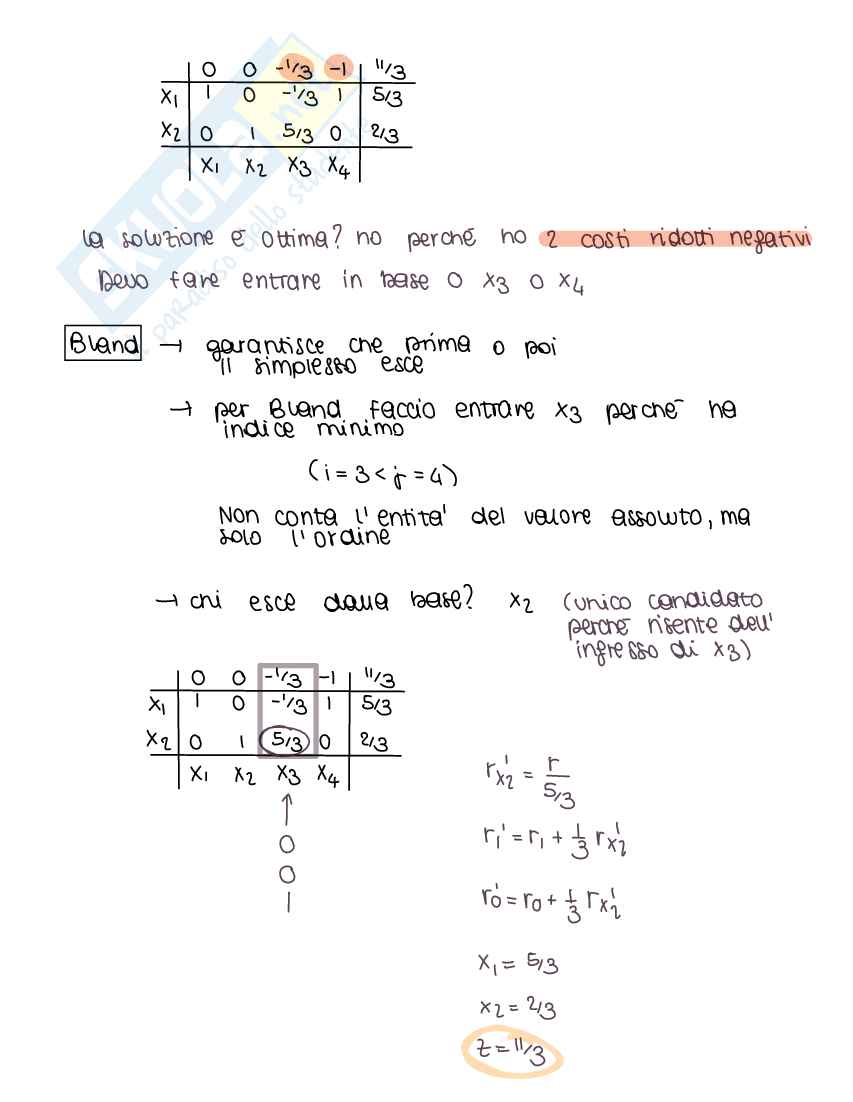 0 0 -1/3 -1 11/3
x1 1 0 -1/3 1 5/3
x2 0 1 5/3 0 2/3
x1 x2 x3 x4
la soluzione è ottima? no perché ho 2 costi ridotti negativi
Devo fare entrare in base o x3 o x4
Bland → garantisce che prima o poi
il simplesso esce
→ per Bland faccio entrare x3 perché ha
indice minimo
(i=3 < j=4)
Non conta l'entita' del valore assoluto, ma
solo l'ordine
→ chi esce dalla base? x2 (unico candidato
perché risente dell'
ingresso di x3)
0 0 -1/3 -1 11/3
x1 1 0 -1/3 1 5/3
x2 0 1 5/3 0 2/3
x1 x2 x3 x4
↑
0
0
1
rx2' = r / 5/3
r1' = r1 + 1/3 rx2'
r0' = r0 + 1/3 rx2'
x1 = 5/3
x2 = 2/3
z = 11/3